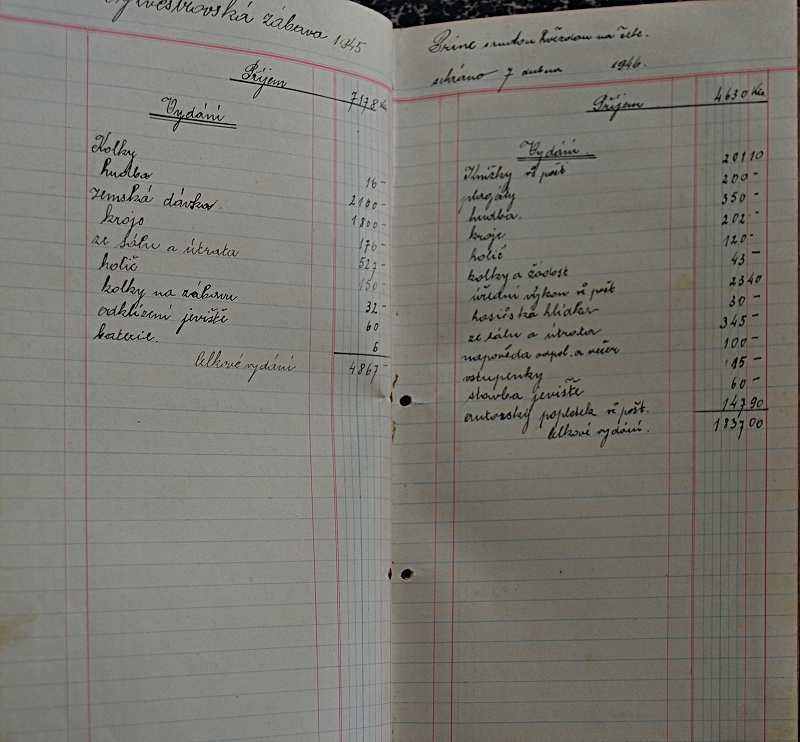 Sylvestrovská zábava 1945
Příjem 7178 Kčs
Vydání
Kolky 16 -
hudba 2100 -
zemská dávka 1800 -
kroje 176 -
ze sálu a útrata 527 -
holič 150 -
kolky na zábavu 32 -
odklízení jeviště 60
baterie. 6
Celkové vydání 4867 -
Princ s rudou hvězdou na čele.
sehráno 7 dubna 1946.
Příjem 4630 Kčs
Vydání
Knížky i pošt 201 10
200 -
hudba. 350 -
kroje 202 -
holič 120 -
kolky a žádost 43 -
úřední výkon i pošt 23 40
hasičská hlídka 30 -
ze sálu a útrata 345 -
nápověda odpol. a večer 100 -
vstupenky
stavba jeviště 60 -
autorský poplatek i pošt. 147 90
Celkové vydání. 1837 00